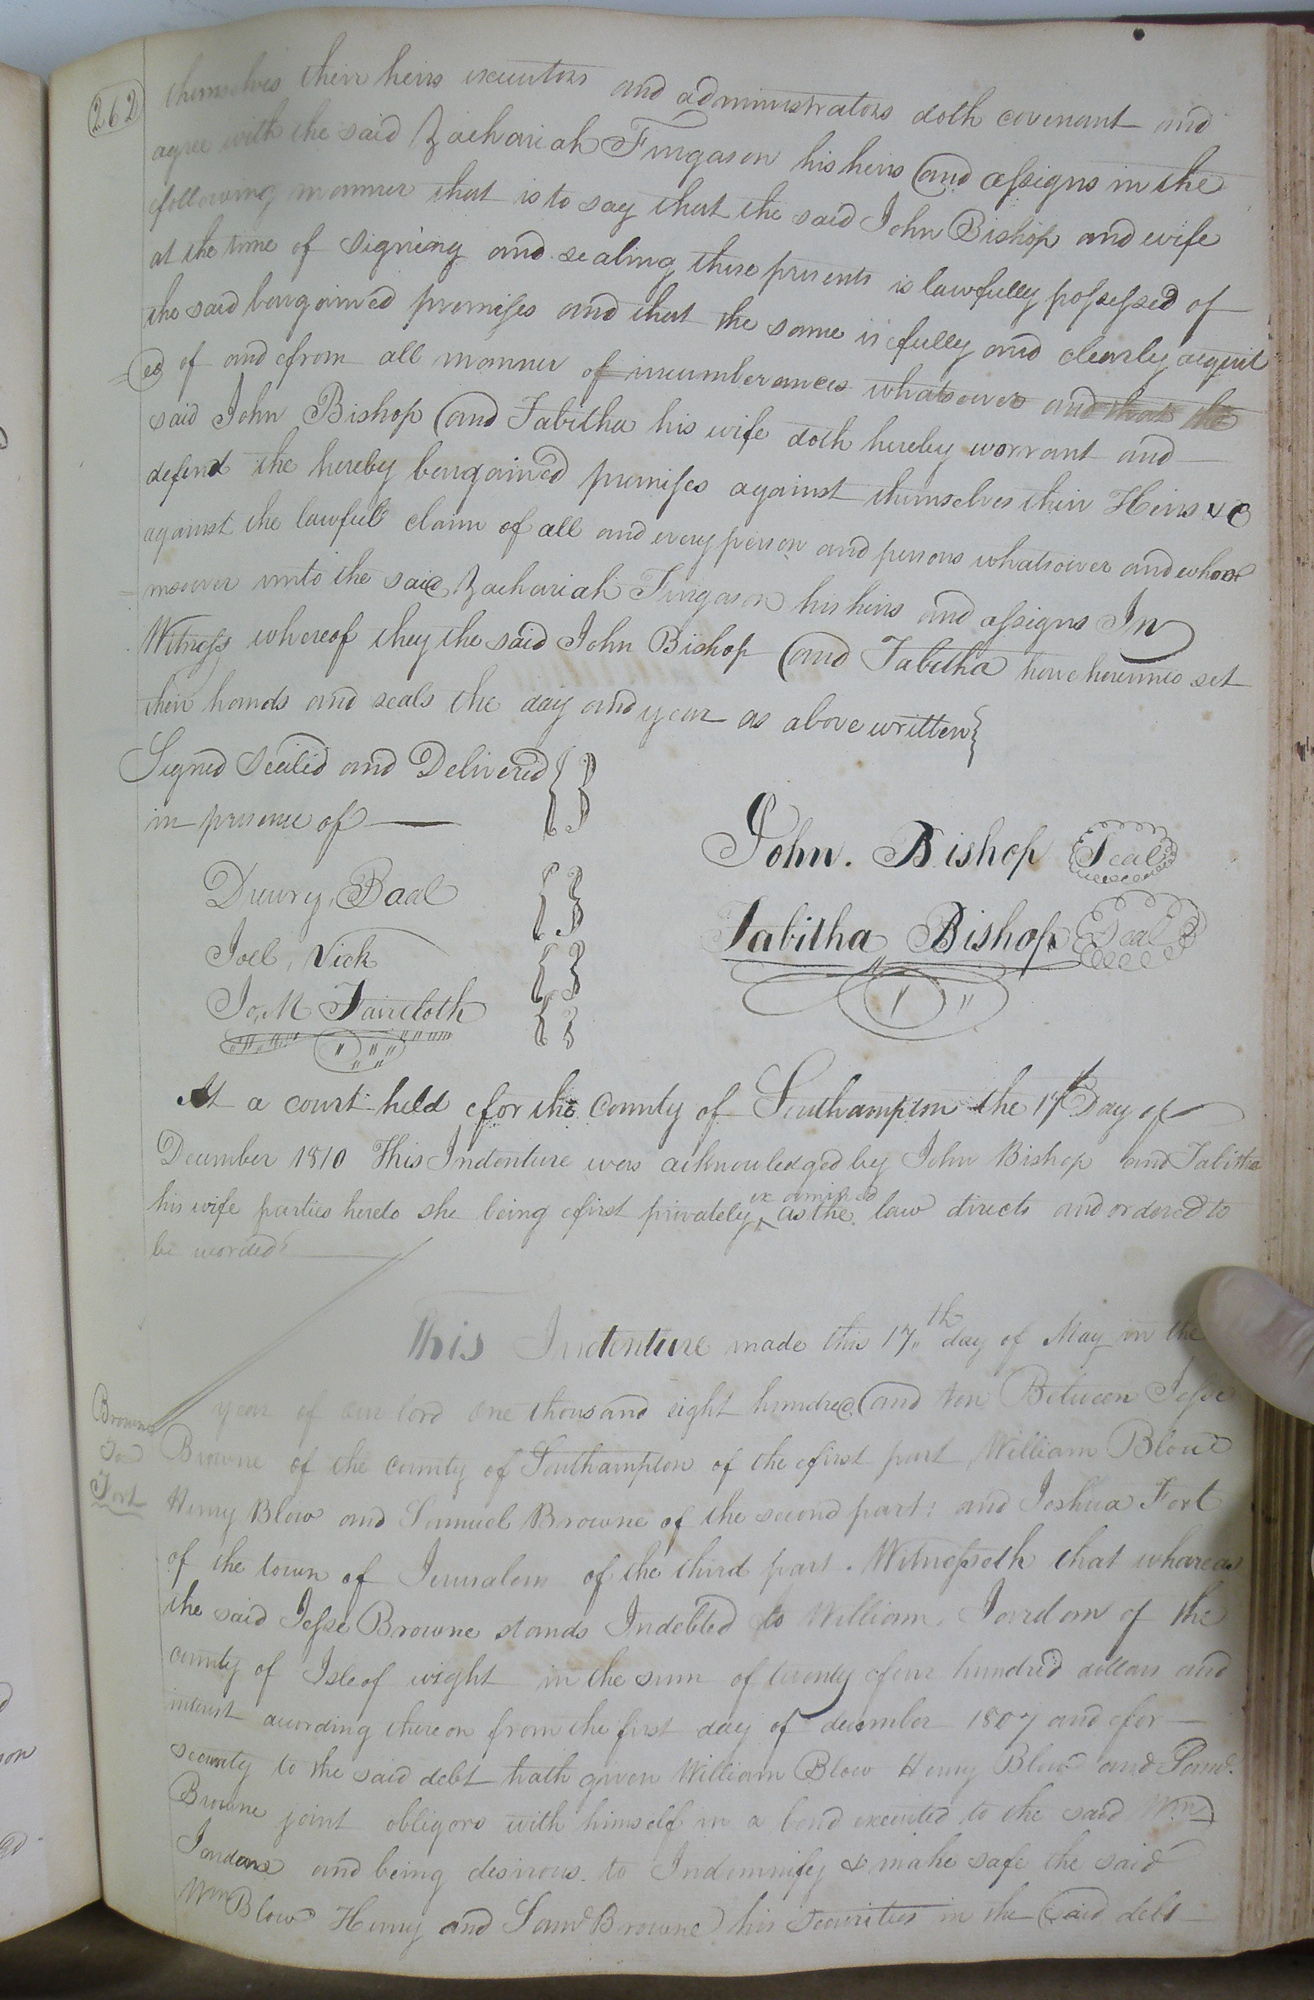 262
themselves their heirs executors and administrators doth covenant and
agree with the said Zachariah Fingason his heirs and assigns in the
following manner that is to say that the said John Bishop and wife
at the time of signing and sealing these presents is lawfully possessed of
the said bargained premises and that the same is fully and clearly acquit
=ed of and from all manner of incumberances whatsoever and thats the
said John Bishop and Tabitha his wife doth hereby warrant and
defend the hereby bargained premises against themselves their Heirs &c
against the lawful claim of all and every person and persons whatsoever and whoso
=msoever unto the said Zachariah Fingason his heirs and assigns In
Witness whereof they the said John Bishop and Tabitha have hereunto set
their hands and seals the day and year as above written
Signed Sealed and Delivered
in presence of
John. Bishop Seal
Drewry, Baal
Tabitha Bishop Seal
Joel, Vick
Jo, M Faircloth
At a court held for the county of Southampton the 17th Day of
December 1810 This Indenture was acknowledged by John Bishop and Tabitha
his wife parties hereto she being first privately examined as the law directs and ordered to
be recorded
This Indenture made this 17th day of May in the
year of our lord one thousand eight hundred and ten Between Jesse
Browne
to
Fort
Browne of the county of Southampton of the first part William Blow
Henry Blow and Samuel Browne of the second part: and Joshua Fort
of the town of Jerusalem of the third part. Witnesseth that whareas
the said Jesse Browne stands Indebted to William Jordan of the
county of Isle of wight in the sum of twenty four hundred dollars and
interest acording thereon from the first day of december 1807 and for
security to the said debt hath given William Blow Henry Blow and Saml.
Browne joint obligors with himself in a bond executed to the said Wm
Jordan and being desirous to Indemnify & make safe the said
Wm Blow Henry and Saml Browne his Securities in the said debt